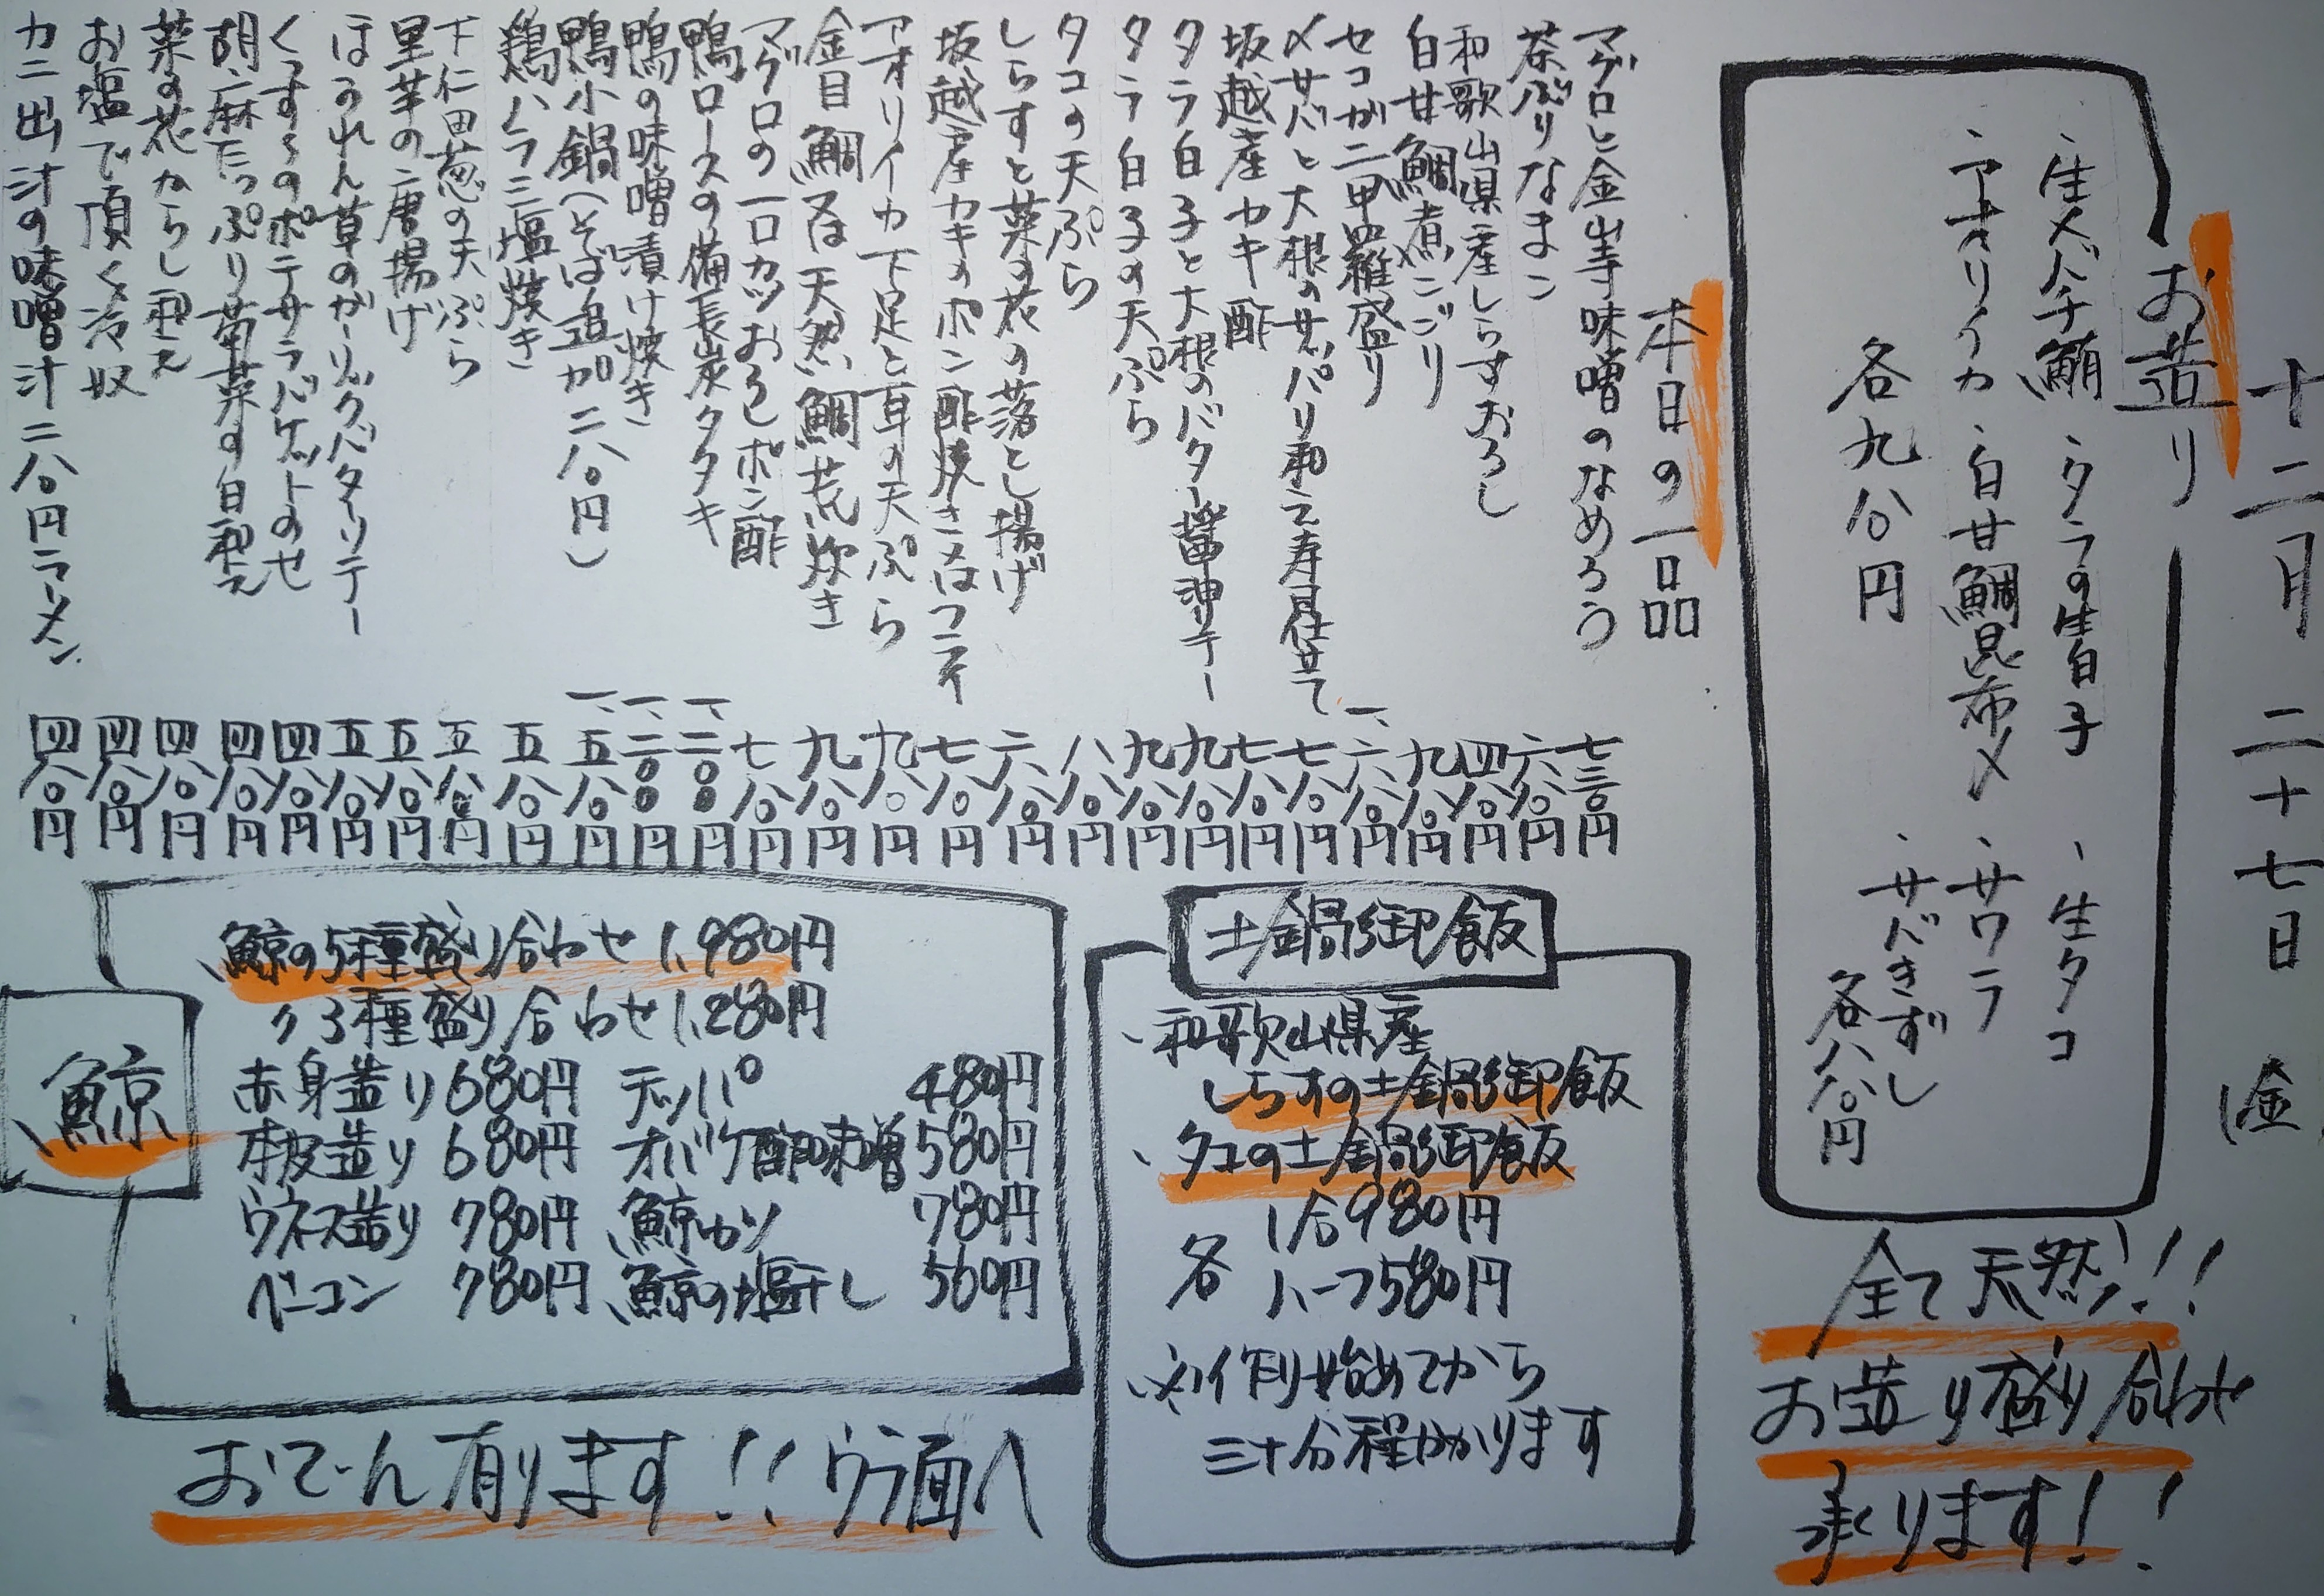 十二月二十七日(金)
お造り
・生メバチ鮪 ・タラの生白子 ・生タコ
・アオリイカ ・白甘鯛昆布〆 ・サワラ
・サバきずし
各九八〇円
各八八〇円
全て天然!!
お造り盛り合わせ
承ります!!
本日の一品
マグロと金山寺味噌のなめろう 七三〇円
茶ぶりなまこ 六八〇円
和歌山県産しらすおろし 四八〇円
白甘鯛煮こごり 九八〇円
セコガニ甲羅盛り 一、六八〇円
〆サバと大根のサッパリ和え寿月仕立て 七八〇円
坂越産カキ酢 七八〇円
タラ白子と大根のバター醤油ソテー 九八〇円
タラ白子の天ぷら 九八〇円
タコの天ぷら 八八〇円
しらすと菜の花の落とし揚げ 六八〇円
坂越産カキのポン酢焼き又はフライ 七八〇円
アオリイカ下足と耳の天ぷら 九八〇円
金目鯛又は天然鯛荒炊き 九八〇円
マグロの一口カツおろしポン酢 七八〇円
鴨ロースの備長炭タタキ 一、二〇〇円
鴨の味噌漬け焼き 一、二〇〇円
鴨小鍋(そば追加二八〇円) 一、五八〇円
鶏ハラミ塩焼き 五八〇円
下仁田葱の天ぷら 五八〇円
里芋の唐揚げ 五八〇円
ほうれん草のガーリックバターソテー 五八〇円
くんすうのポテサラバゲットのせ 四八〇円
胡麻たっぷり菊菜の白和え 四八〇円
菜の花からし和え 四八〇円
お塩で頂く冷奴 四八〇円
カニ出汁の味噌汁二八〇円ラーメン 四八〇円
土鍋御飯
・和歌山県産
しらすの土鍋御飯
・タコの土鍋御飯
各 1合980円
ハーフ580円
※作り始めてから
三十分程かかります
鯨
鯨の5種盛り合わせ 1,980円
〃 3種盛り合わせ 1,280円
赤身造り 680円 テッパ 480円
本皮造り 680円 オバケ酢味噌 580円
ウネス造り 780円 鯨カツ 780円
ベーコン 780円 鯨の塩干し 560円
おでん有ります!!ウラ面へ